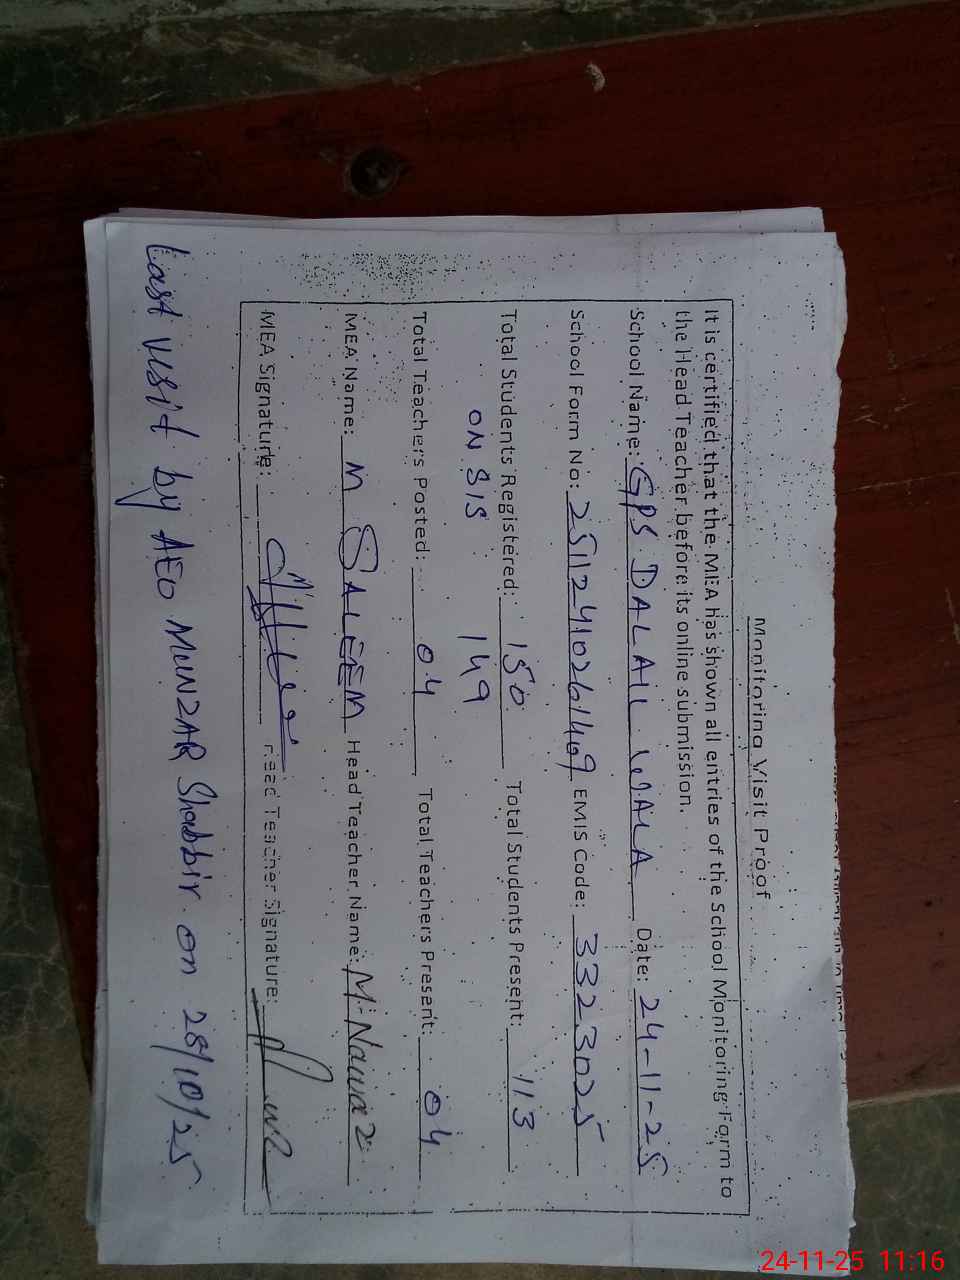 Monitoring Visit Proof
It is certified that the MEA has shown all entries of the School Monitoring Form to
the Head Teacher before its online submission.
School Name: GPS DALAIL WALA Date: 24-11-25
School Form No: 25112410261469 EMIS Code: 33223025
Total Students Registered: 150 Total Students Present: 113
ON SIS 149
Total Teachers Posted: 04 Total Teachers Present: 04
MEA Name: M SALEEM Head Teacher Name: M. Nawaz
MEA Signature: Head Teacher Signature:
Last visit by AEO MUNZAR Shabbir on 28/10/25
24-11-25 11:16